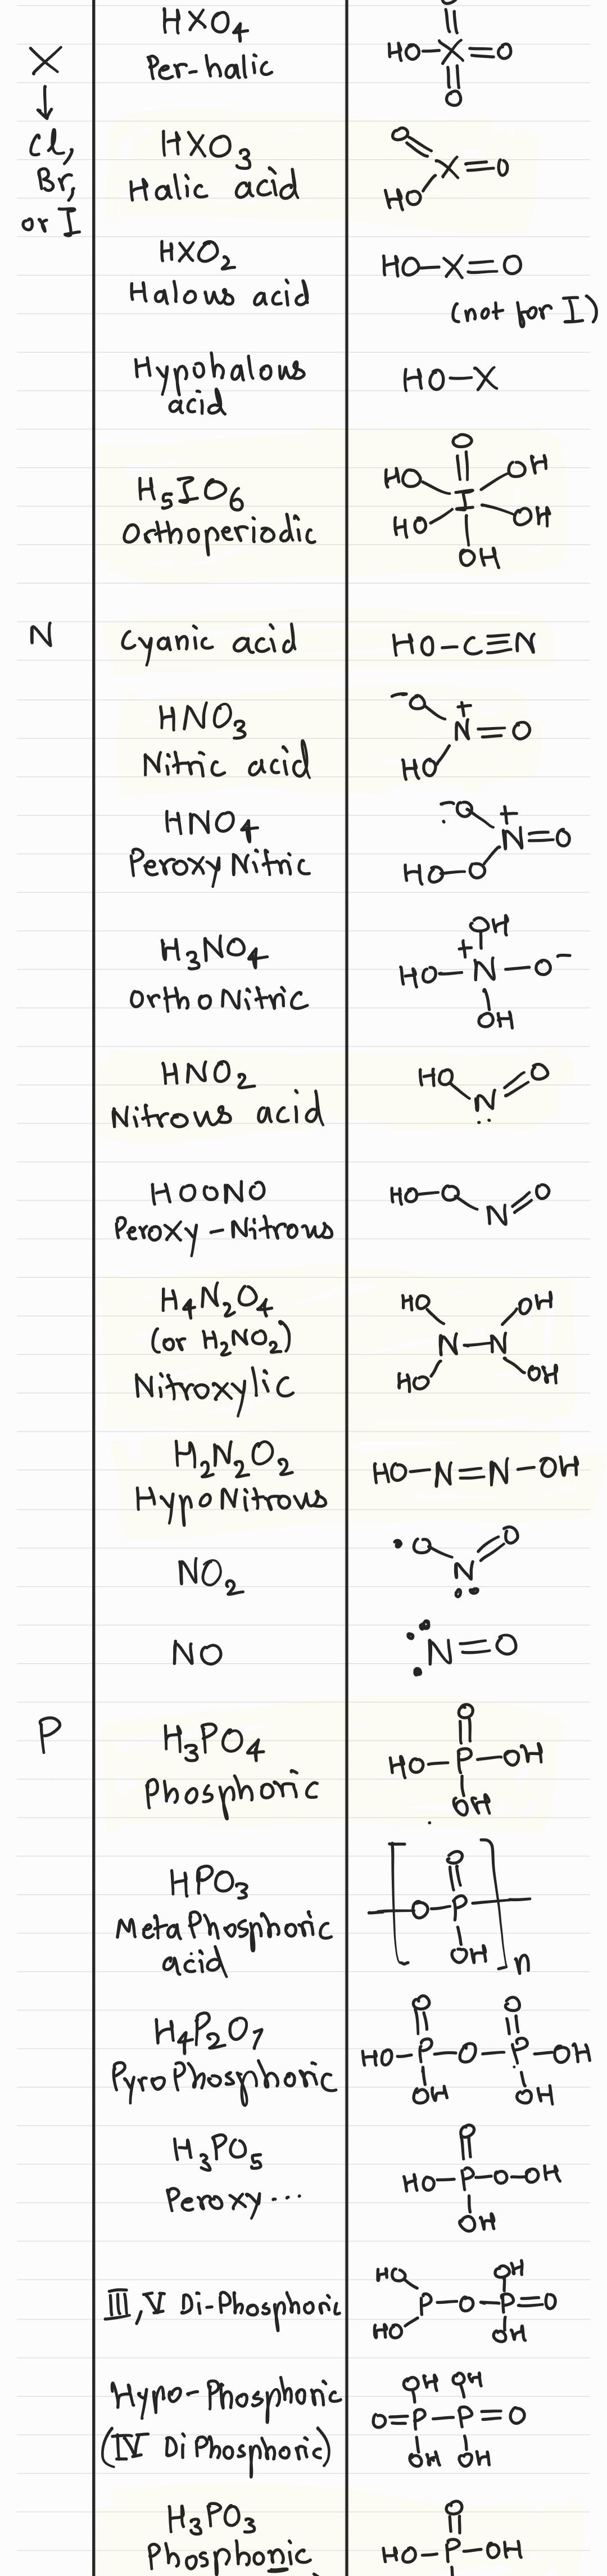 HXO4
Per-halic
O
HO-X=O
O
X
↓
Cl,
Br,
or I
HXO3
Halic acid
O
X=O
HO
HXO2
Halous acid
HO-X=O
(not for I)
Hypohalous
acid
HO-X
H5IO6
Orthoperiodic
O
HO OH
I
HO OH
OH
N
Cyanic acid
HO-C≡N
HNO3
Nitric acid
-O +
N=O
HO
HNO4
Peroxy Nitric
-O +
N=O
HO-O
H3NO4
Ortho Nitric
OH
+
HO-N-O-
OH
HNO2
Nitrous acid
HO O
N
HOONO
Peroxy-Nitrous
HO-O O
N
H4N2O4
(or H2NO2)
Nitroxylic
HO OH
N-N
HO OH
H2N2O2
HypoNitrous
HO-N=N-OH
NO2
O O
N
NO
N=O
P
H3PO4
Phosphoric
O
HO-P-OH
OH
HPO3
Meta Phosphoric
acid
O
-O-P-
OH
n
H4P2O7
PyroPhosphoric
O O
HO-P-O-P-OH
OH OH
H3PO5
Peroxy...
O
HO-P-O-OH
OH
III,V Di-Phosphoric
HO OH
P-O-P=O
HO OH
Hypo-Phosphoric
(IV DiPhosphoric)
OH OH
O=P-P=O
OH OH
H3PO3
Phosphonic
O
HO-P-OH